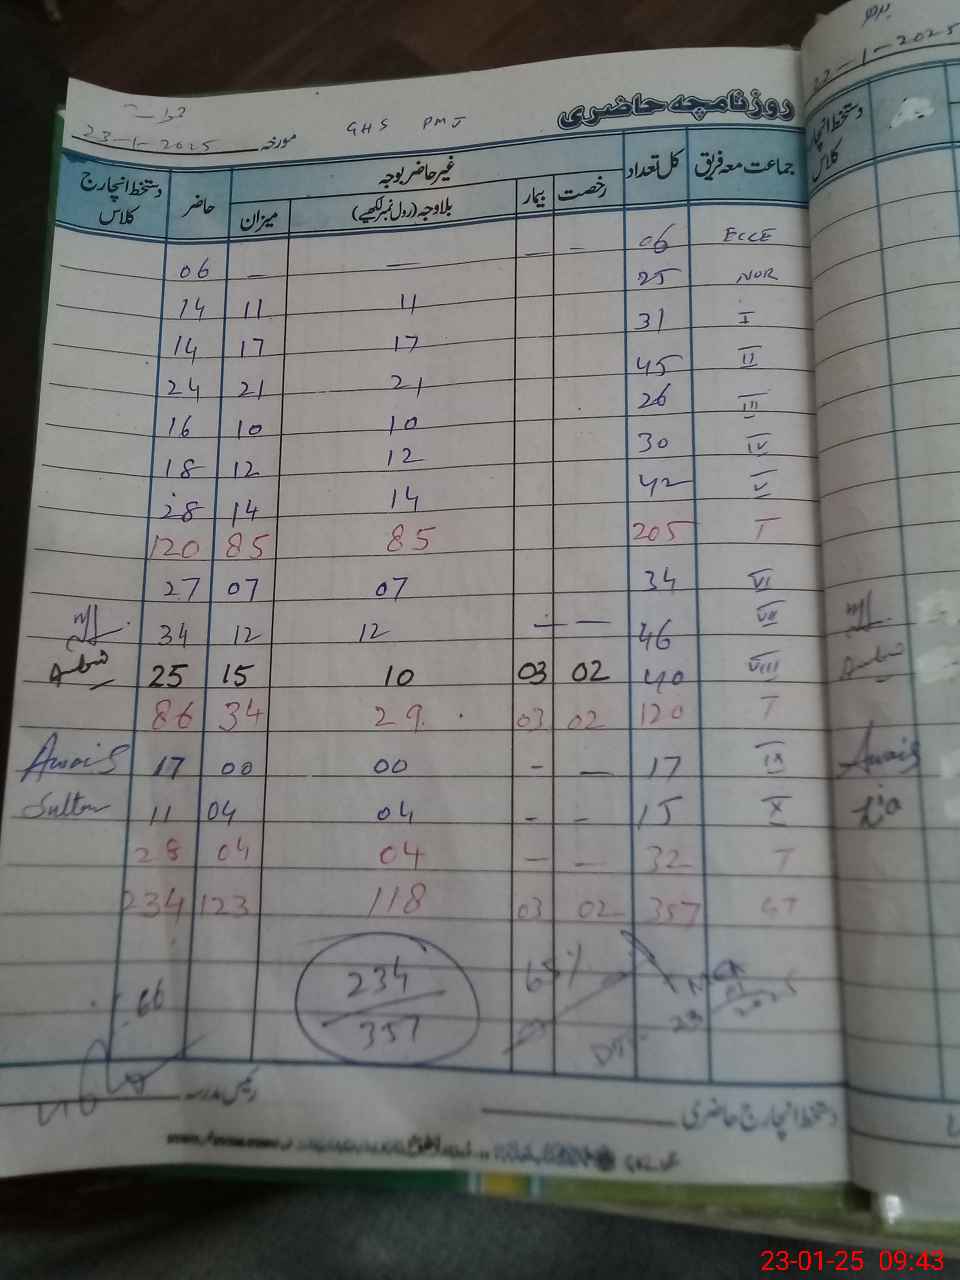 22-1-2025
روزنامچہ حاضری
GHS PMJ
مورخہ 23-1-2025
جماعت معہ فریق کل تعداد غیر حاضر بوجہ حاضر دستخط انچارج کلاس
رخصت بیمار بلاوجہ (رول نمبر لکھیے) میزان
دستخط انچارج کلاس
ECCE 06 — — — — 06
NUR 25 11 11 14
I 31 17 17 14
II 45 21 21 24
III 26 10 10 16
IV 30 12 12 18
V 42 14 14 28
T 205 85 85 120
VI 34 07 07 27
VII 46 — — 12 12 34
VIII 40 02 03 10 15 25
T 120 02 03 29 34 86
IX 17 — - 00 00 17 Awais
X 15 - - 04 04 11 Sultan
T 32 — — 04 04 28
GT 357 02 03 118 123 234
Awais
Zia
234
357
65%
.66
23
01
2025
دستخط انچارج حاضری
رئیس مدرسہ
23-01-25 09:43